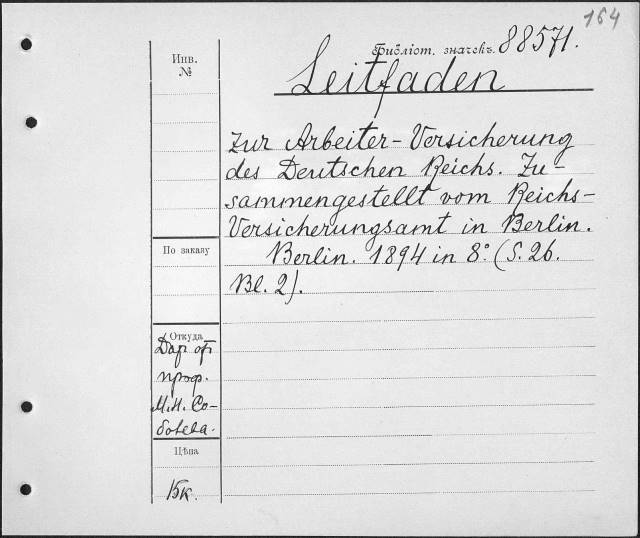 164
Библіот. значекъ. 88571.
Инв.
№
Leitfaden
zur Arbeiter-Versicherung
des Deutschen Reichs. Zu-
sammengestellt vom Reichs-
Versicherungsamt in Berlin.
Berlin. 1894 in 8º (S. 26.
Bl. 2).
По заказу
Откуда
Дар от
проф.
М.Н. Со-
болева.
Цѣна
15к.